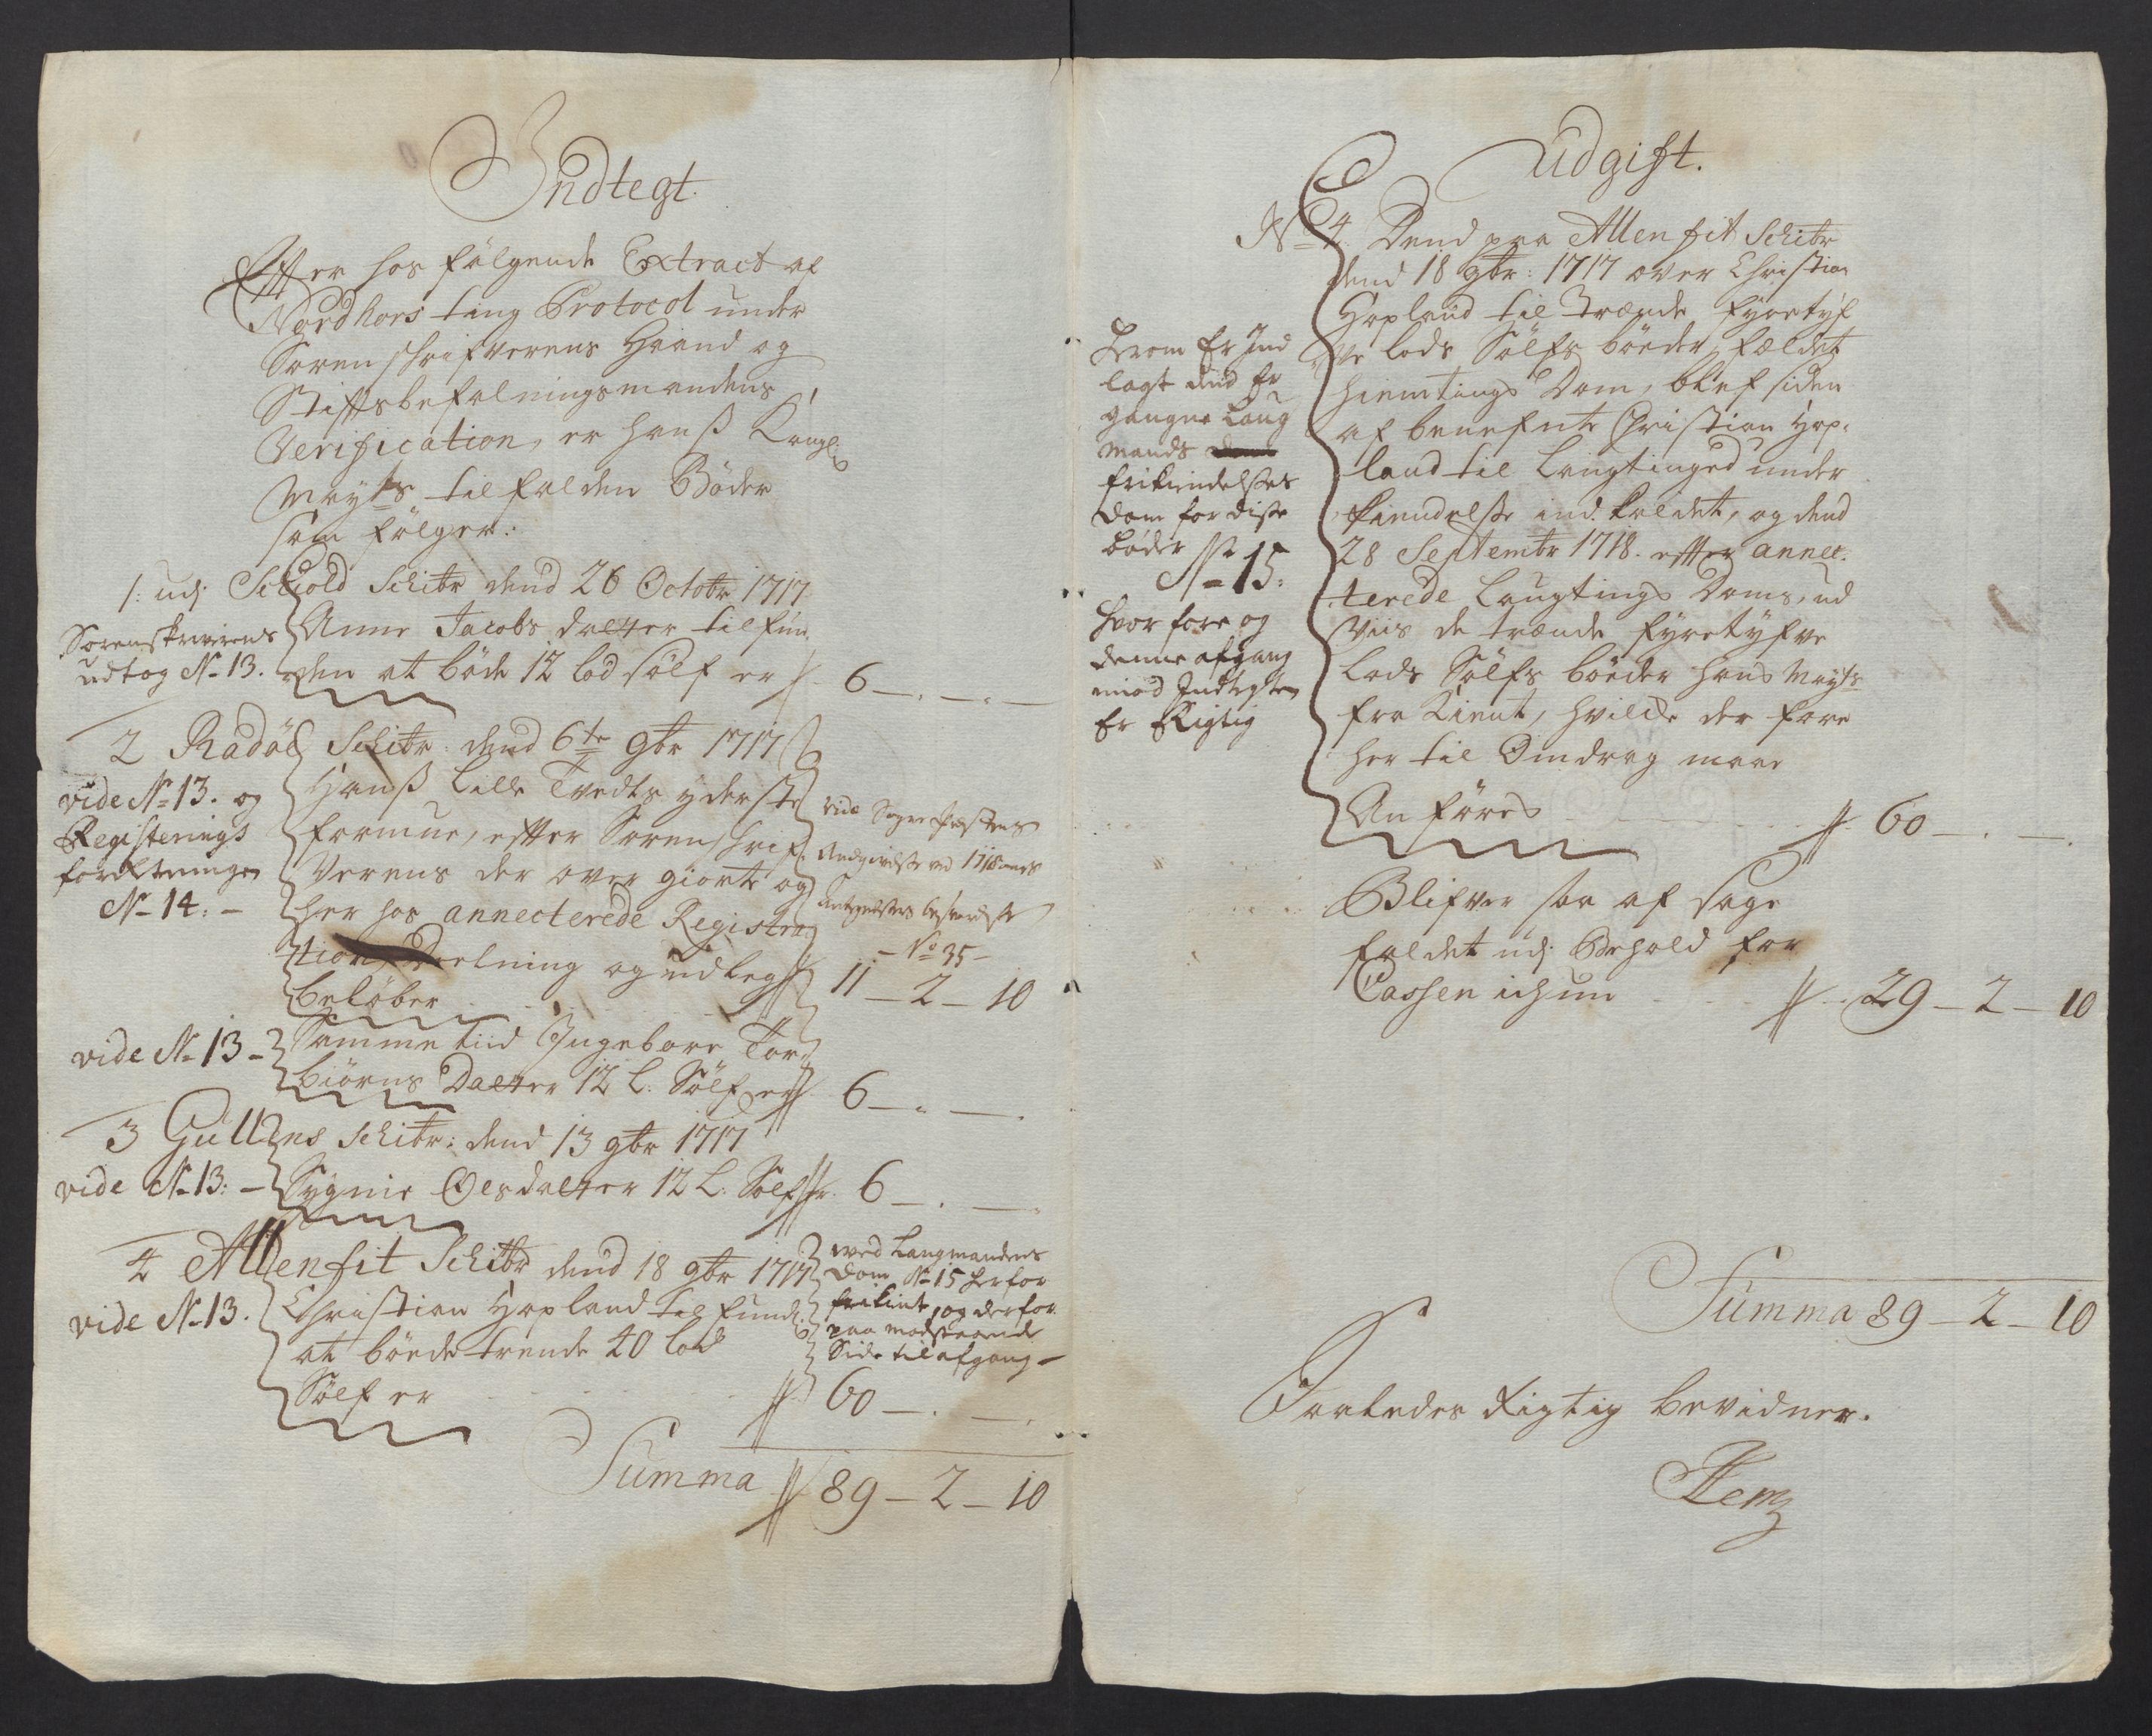 Indtegt.
Efter hos følgende Extract af
Nordhors ting Protocol under
Sorenschrifverens Haand og
Stiftsbefalningsmandens
Verification, er hanß Kongl:
Mayts tilfalden Bøder
som følger:
1: udj Schiold Schibr dend 26 Octobr 1717
Sorenskriverens
udtog No 13.
Anne Jacobs datter tilfun¬
den at bøde 12 lod sølf er 6 – . – . –
2 Radøe Schibr: dend 6te 9br 1717
vide No 13. og
Registerings
forretningen
No 14: –
Hanß Lille Tvedts yderste
formue, efter Sorenschrif¬
verens der over giorte og
her hos annecterede Registra¬
tions Deelning og udleg
beløber 11 – 2 – 10
vide Sogne Præstens
Angivelse ved 1718 aars
Antegnelsers besvarelse
– No 35 –
vide No 13 –
Samme tiid Ingebore Tor¬
biørns Datter 12 L: Sølf er 6 – . – .
3 Gullens Schibr: dend 13 9br 1717
vide No 13: – Sygnie Olsdatter 12 L: Sølf er 6 – . – .
4 Allenfit Schibr dend 18 9br 1717
vide No 13.
Christian Hopland tilfunden
at bøede trende 40 lod
Sølf er 60 – . – .
ved Laugmandens
Dom No 15 herfor
frikient, og derfor
paa modstaaende
Side til afgang –
Summa 89 – 2 – 10
Udgift.
No 4. Dend paa Allenfit Schibr
dend 18 9br: 1717 over Christian
Hopland til trænde fyretyf
ve lods Sølfs bøeder fældet
hiemtings Dom, blef siden
af benefnte Christian Hop¬
land til Laugtinged under
kiendelse ind kaldet, og dend
28 Septembr 1718. efter annec¬
terede Laugtings Doms, ud
Viis de trænde fyretyfve
Lods Sølfs bøeder hans Mayts
fra Kient, hvilcke der fore
her til Omdrag maae
Anføres 60 – . – .
Hvorom Er Ind
lagt dend Er
gangne Laug
mands dom
frikiendelses
Dom for disse
bøder No 15:
Hvorfore og
denne afgang
imod Indtegten
Er Rigtig
Blifver saa af sage
faldet udj Behold for
Cassen ichun 29 – 2 – 10
Summa 89 – 2 – 10
Saaledes Rigtig bevidner.